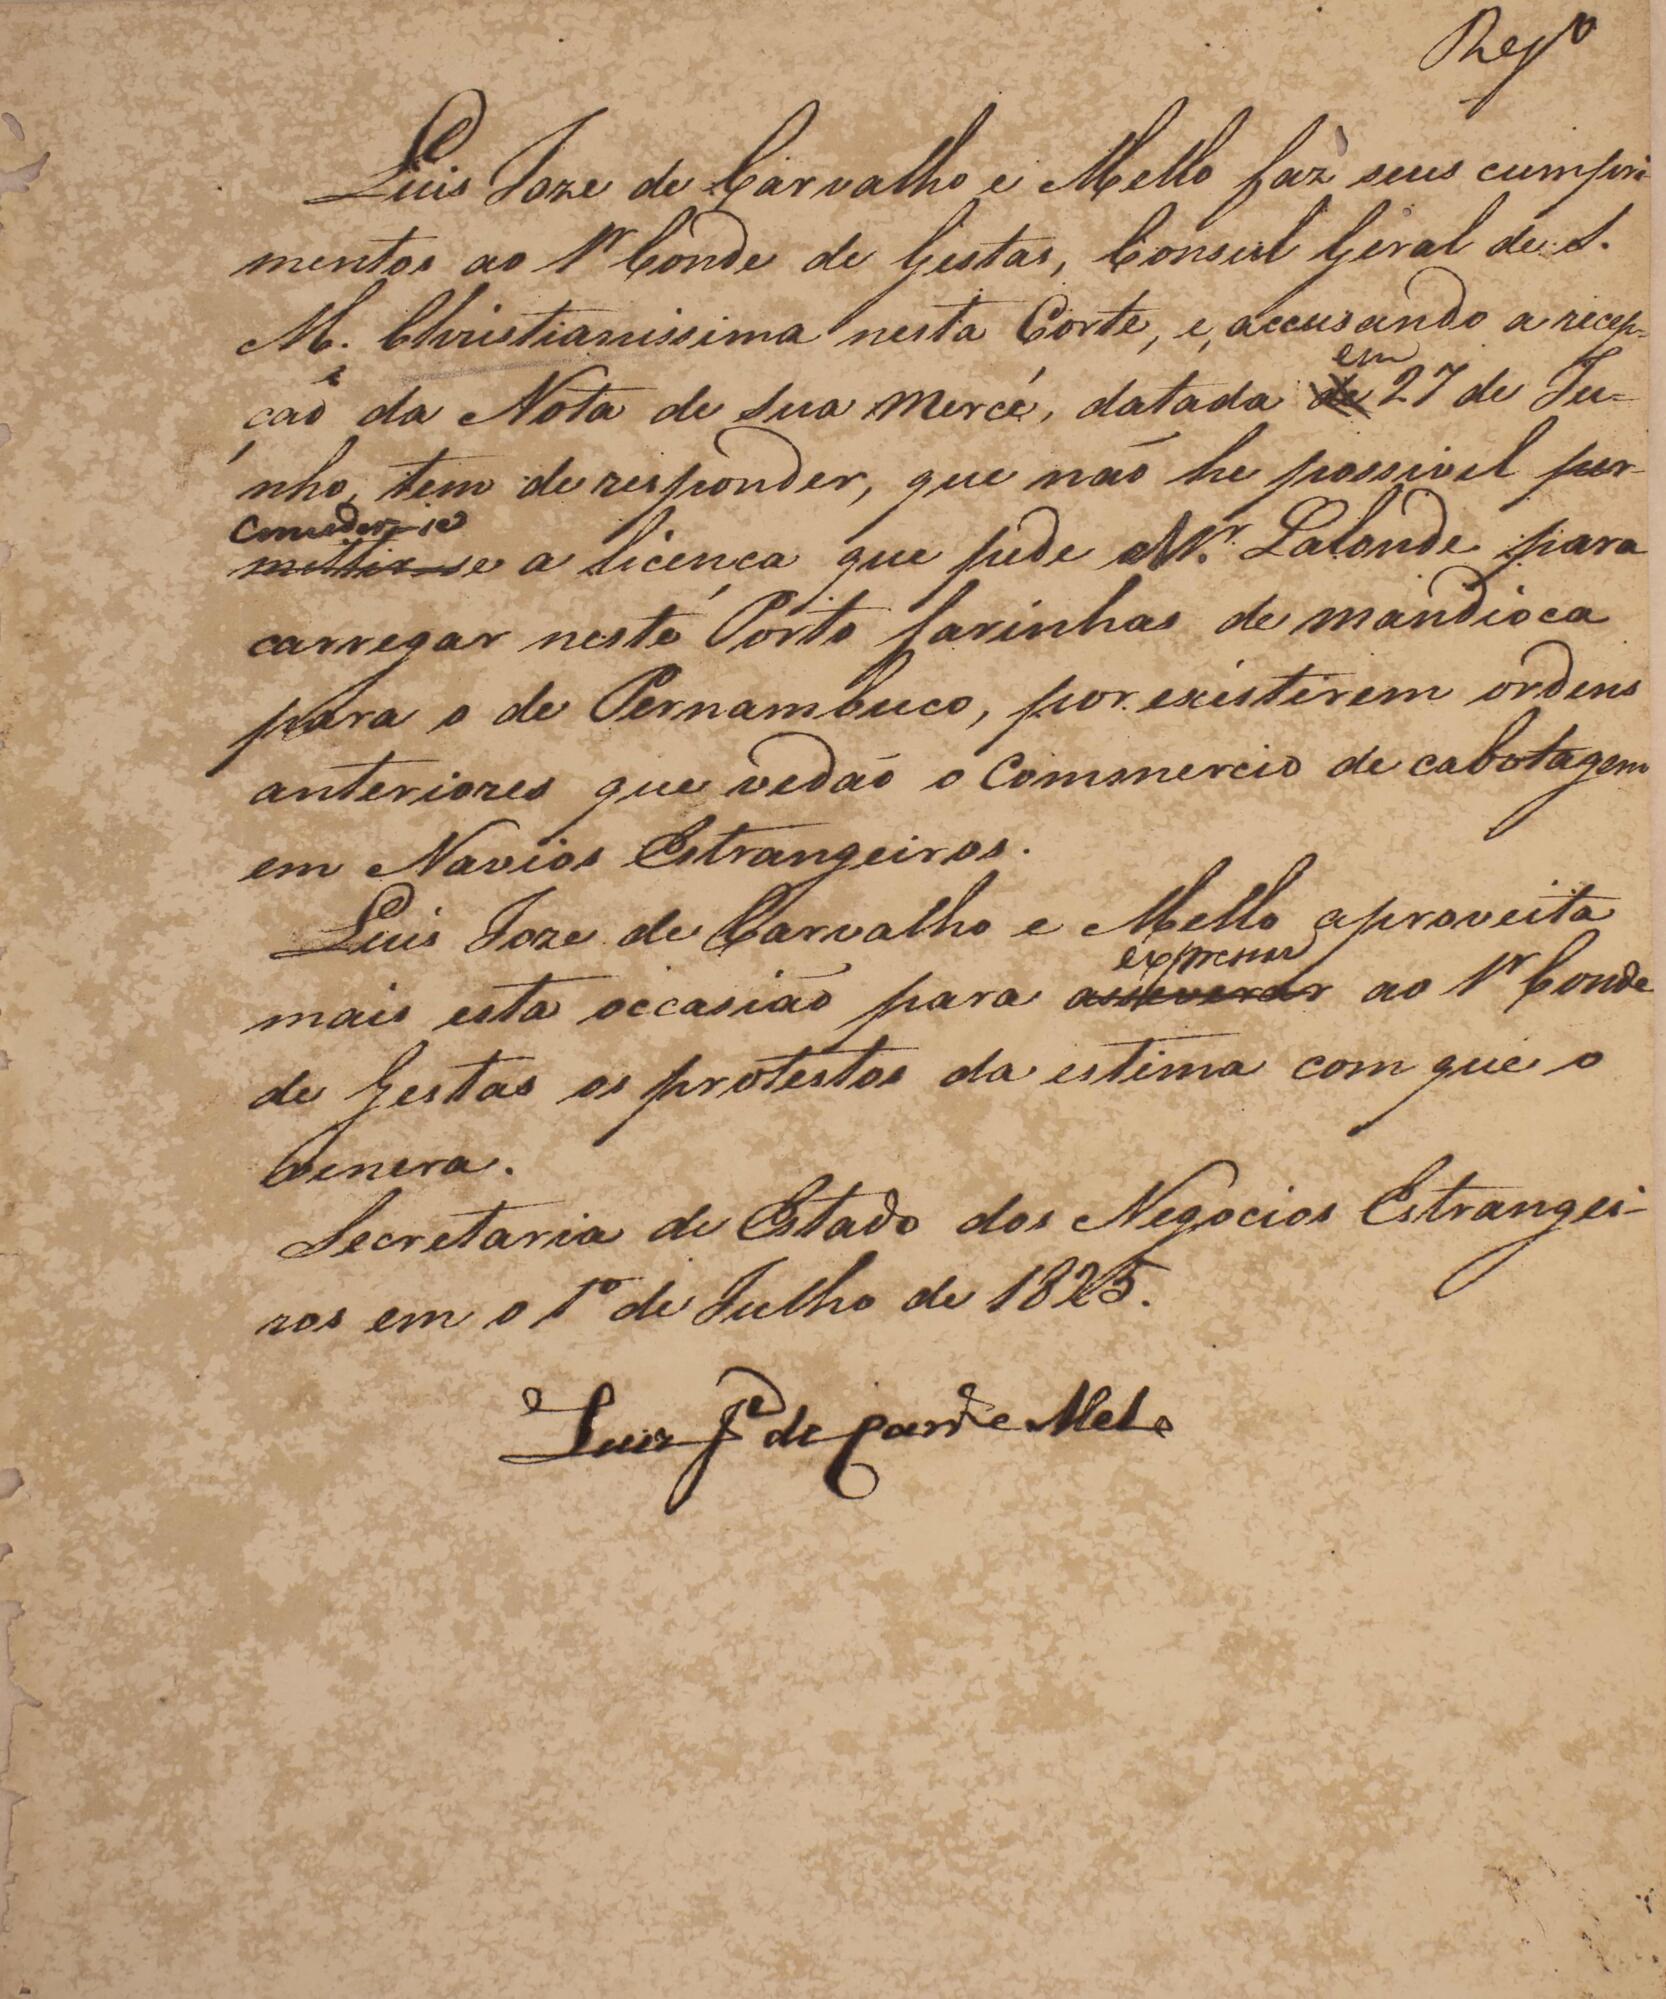 Regº
Luis Joze de Carvalho e Mello faz seus cumpri-
mentos ao Sr Conde de Gestas, Consul Geral de S.
M. Christianissima nesta Corte, e, accusando a recep-
em
ção da Nota de sua Mercé, datada de 27 de Ju-
nho, tem de responder, que não he possivel per-
conceder-se
mittir-se a licença que pede Mr. Lalonde para
carregar neste Porto farinhas de mandioca
para o de Pernambuco, por existirem ordens
anteriores que vedão o Commercio de cabotagem
em Navios Estrangeiros.
Luis Joze de Carvalho e Mello aproveita
expressar
mais esta occasião para asseverar ao Sr Conde
de Gestas os protestos da estima com que o
venera.
Secretaria de Estado dos Negocios Estrangei-
ros em o 1º de Julho de 1825.
Luiz Je de Carvº e Mello